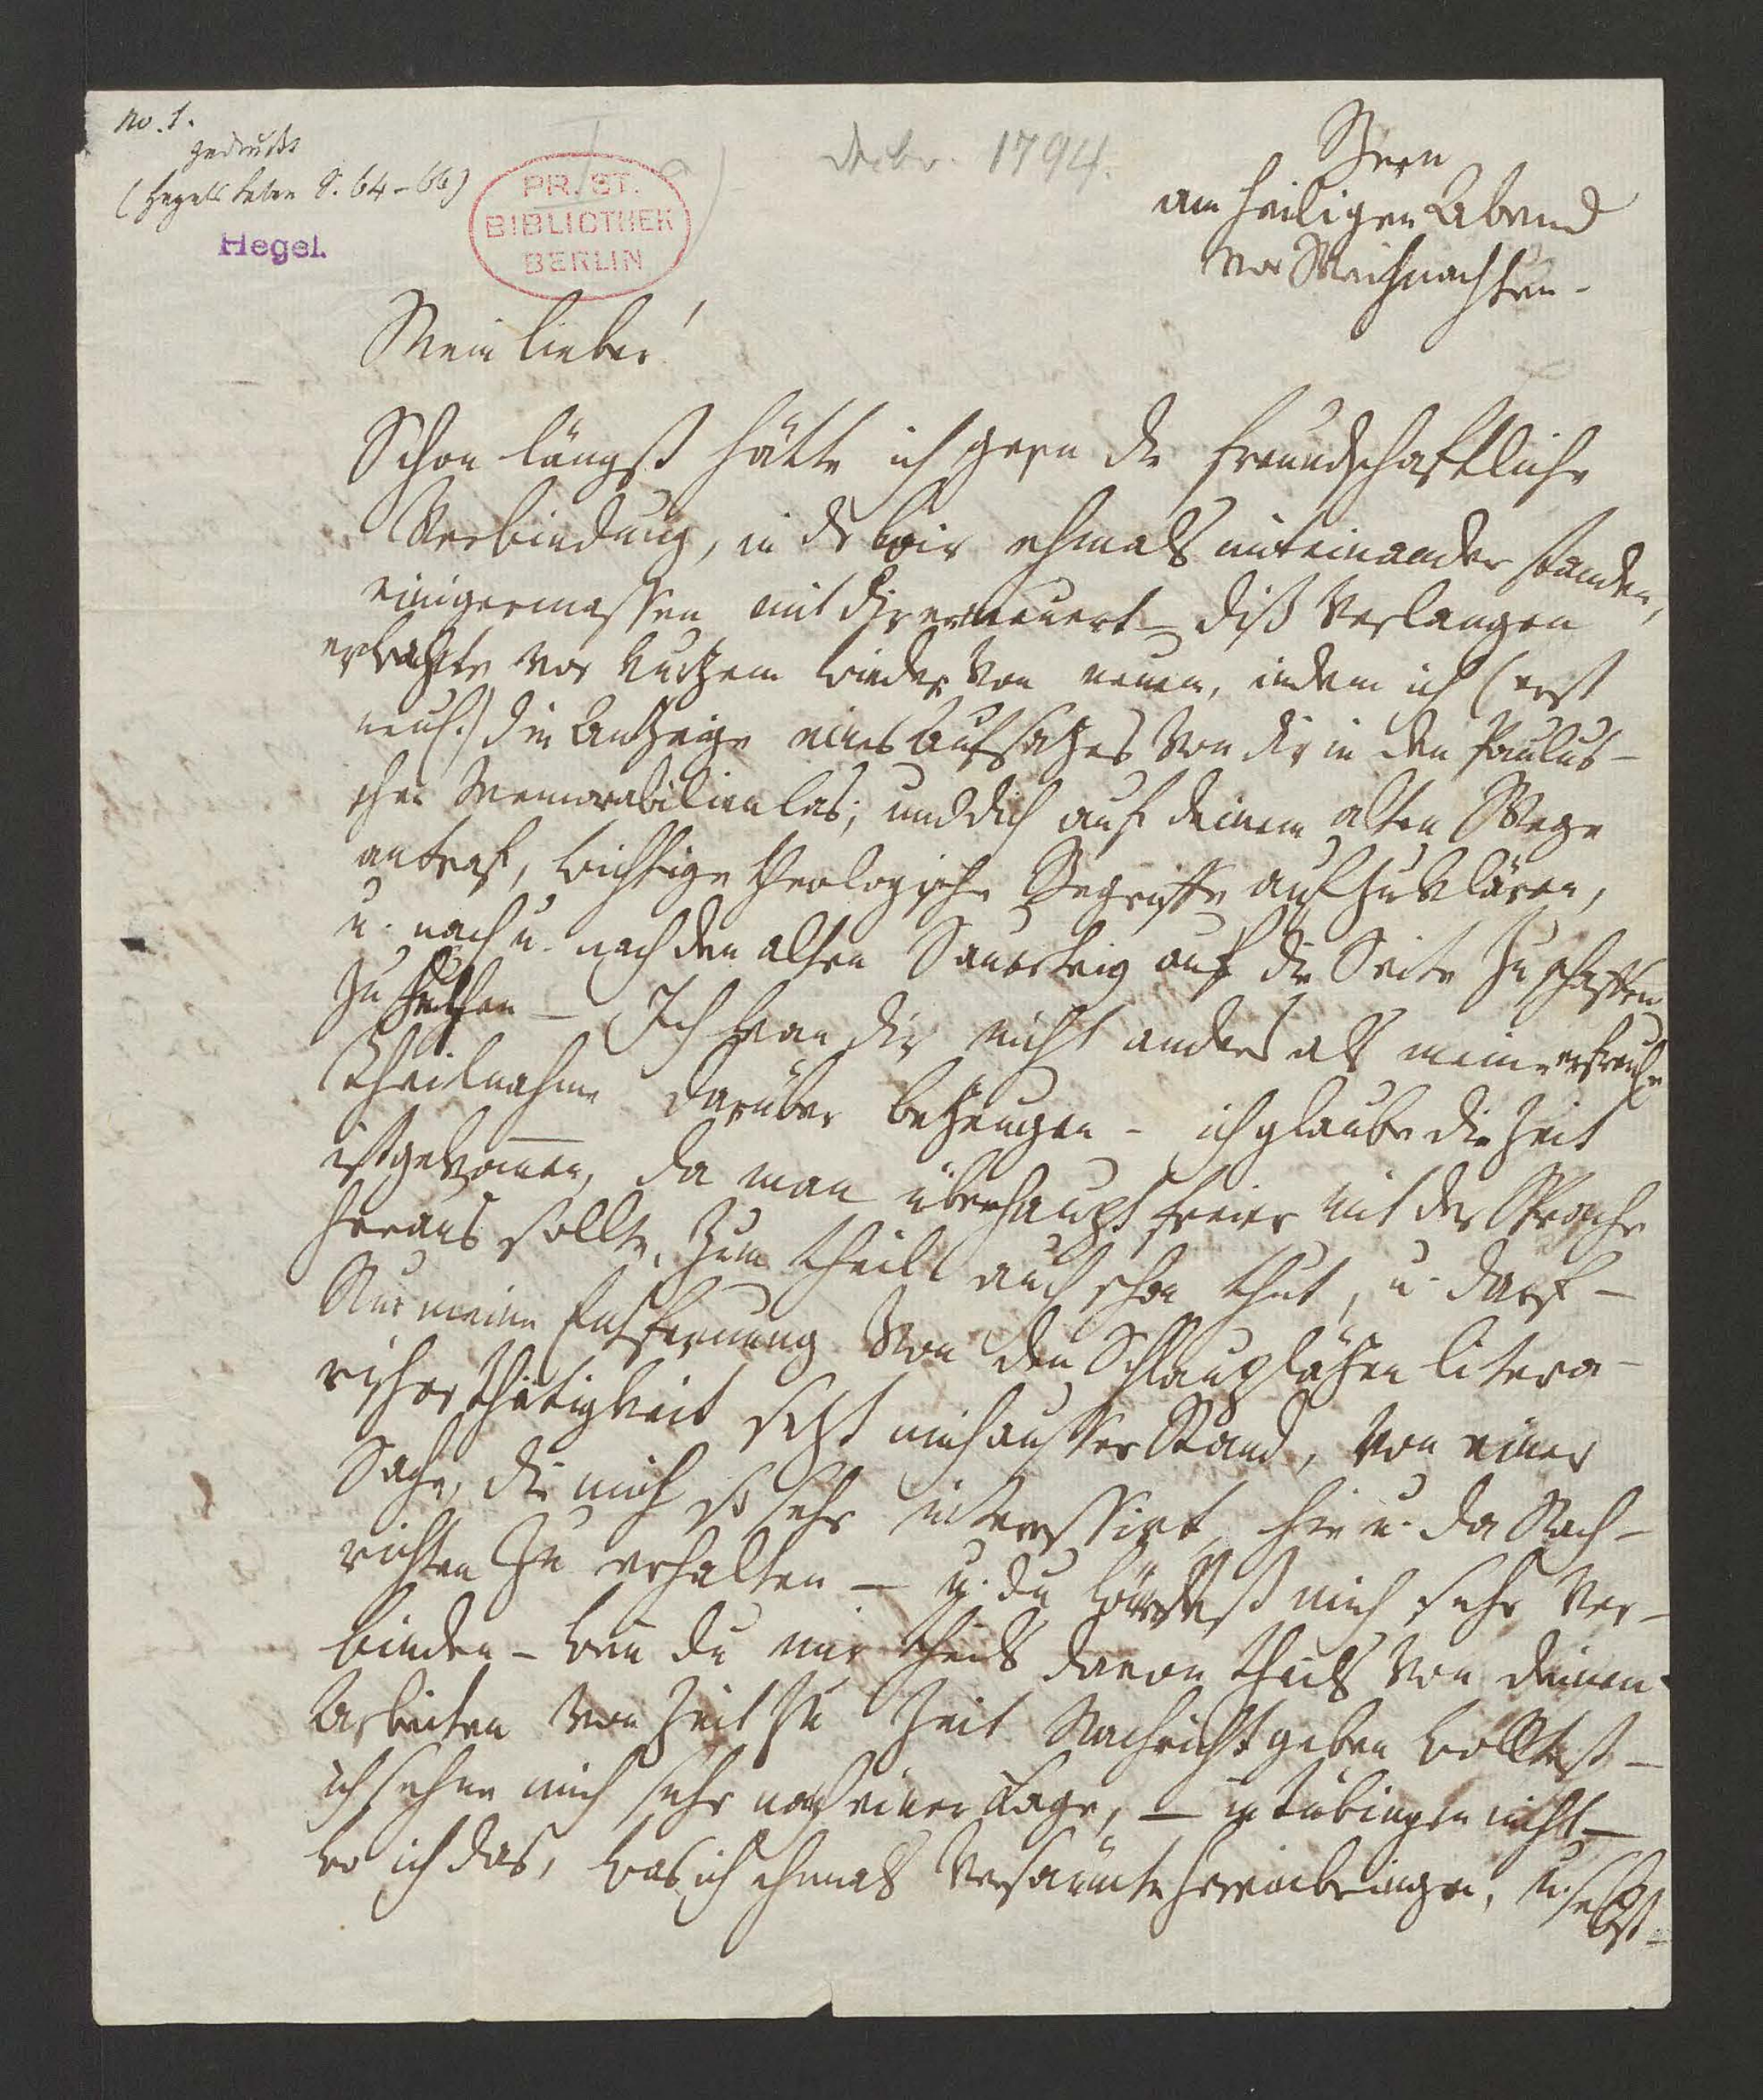 no. 1.
gedruckt
(Hegels Leben S. 64-66)
Hegel.
PR. ST.
BIBLIOTHEK
BERLIN
Decbr. 1794.
Bern
am heiligen Abend
vor Weihnachten.
Mein Lieber!
Schon längst hätte ich gern die freundschaftliche
Verbindung, in der wir ehmals miteinander standen,
einigermassen mit dir erneuert – diß Verlangen
erwachte vor kurzem wieder von neuem, indem ich (erst
neul.) die Anzeige eines Aufsatzes von dir in den Paulus-
schen Memorabilien las; und dich auf deinem alten Wege
antraf, wichtige theologische Begriffe aufzuklären,
u. nach u. nach den alten Sauerteig auf die Seite zu schaffen
zu helfen – Ich kan dir nicht anders als meine erfreuliche
Theilnahme darüber bezeugen – ich glaube die Zeit
ist gekom̅en, da man überhaupt freier mit der Sprache
heraus sollte, zum theil auch schon thut, u. darf –
Nur meine Entfernung von den Schauplätzen litera-
rischer Thätigkeit setzt mich ausser Stand, von einer
Sache, die mich so sehr interessirt, hie u. da Nach-
richten zu erhalten – u. du würdest mich sehr ver-
binden – wen̅ du mir theils davon theils von deinen
Arbeiten von Zeit zu Zeit Nachricht geben wolltest –
ich sehne mich sehr nach einer Lage, – in Tübingen nicht –
wo ich das, was ich ehmals versäumte hereinbringen, u. selbst